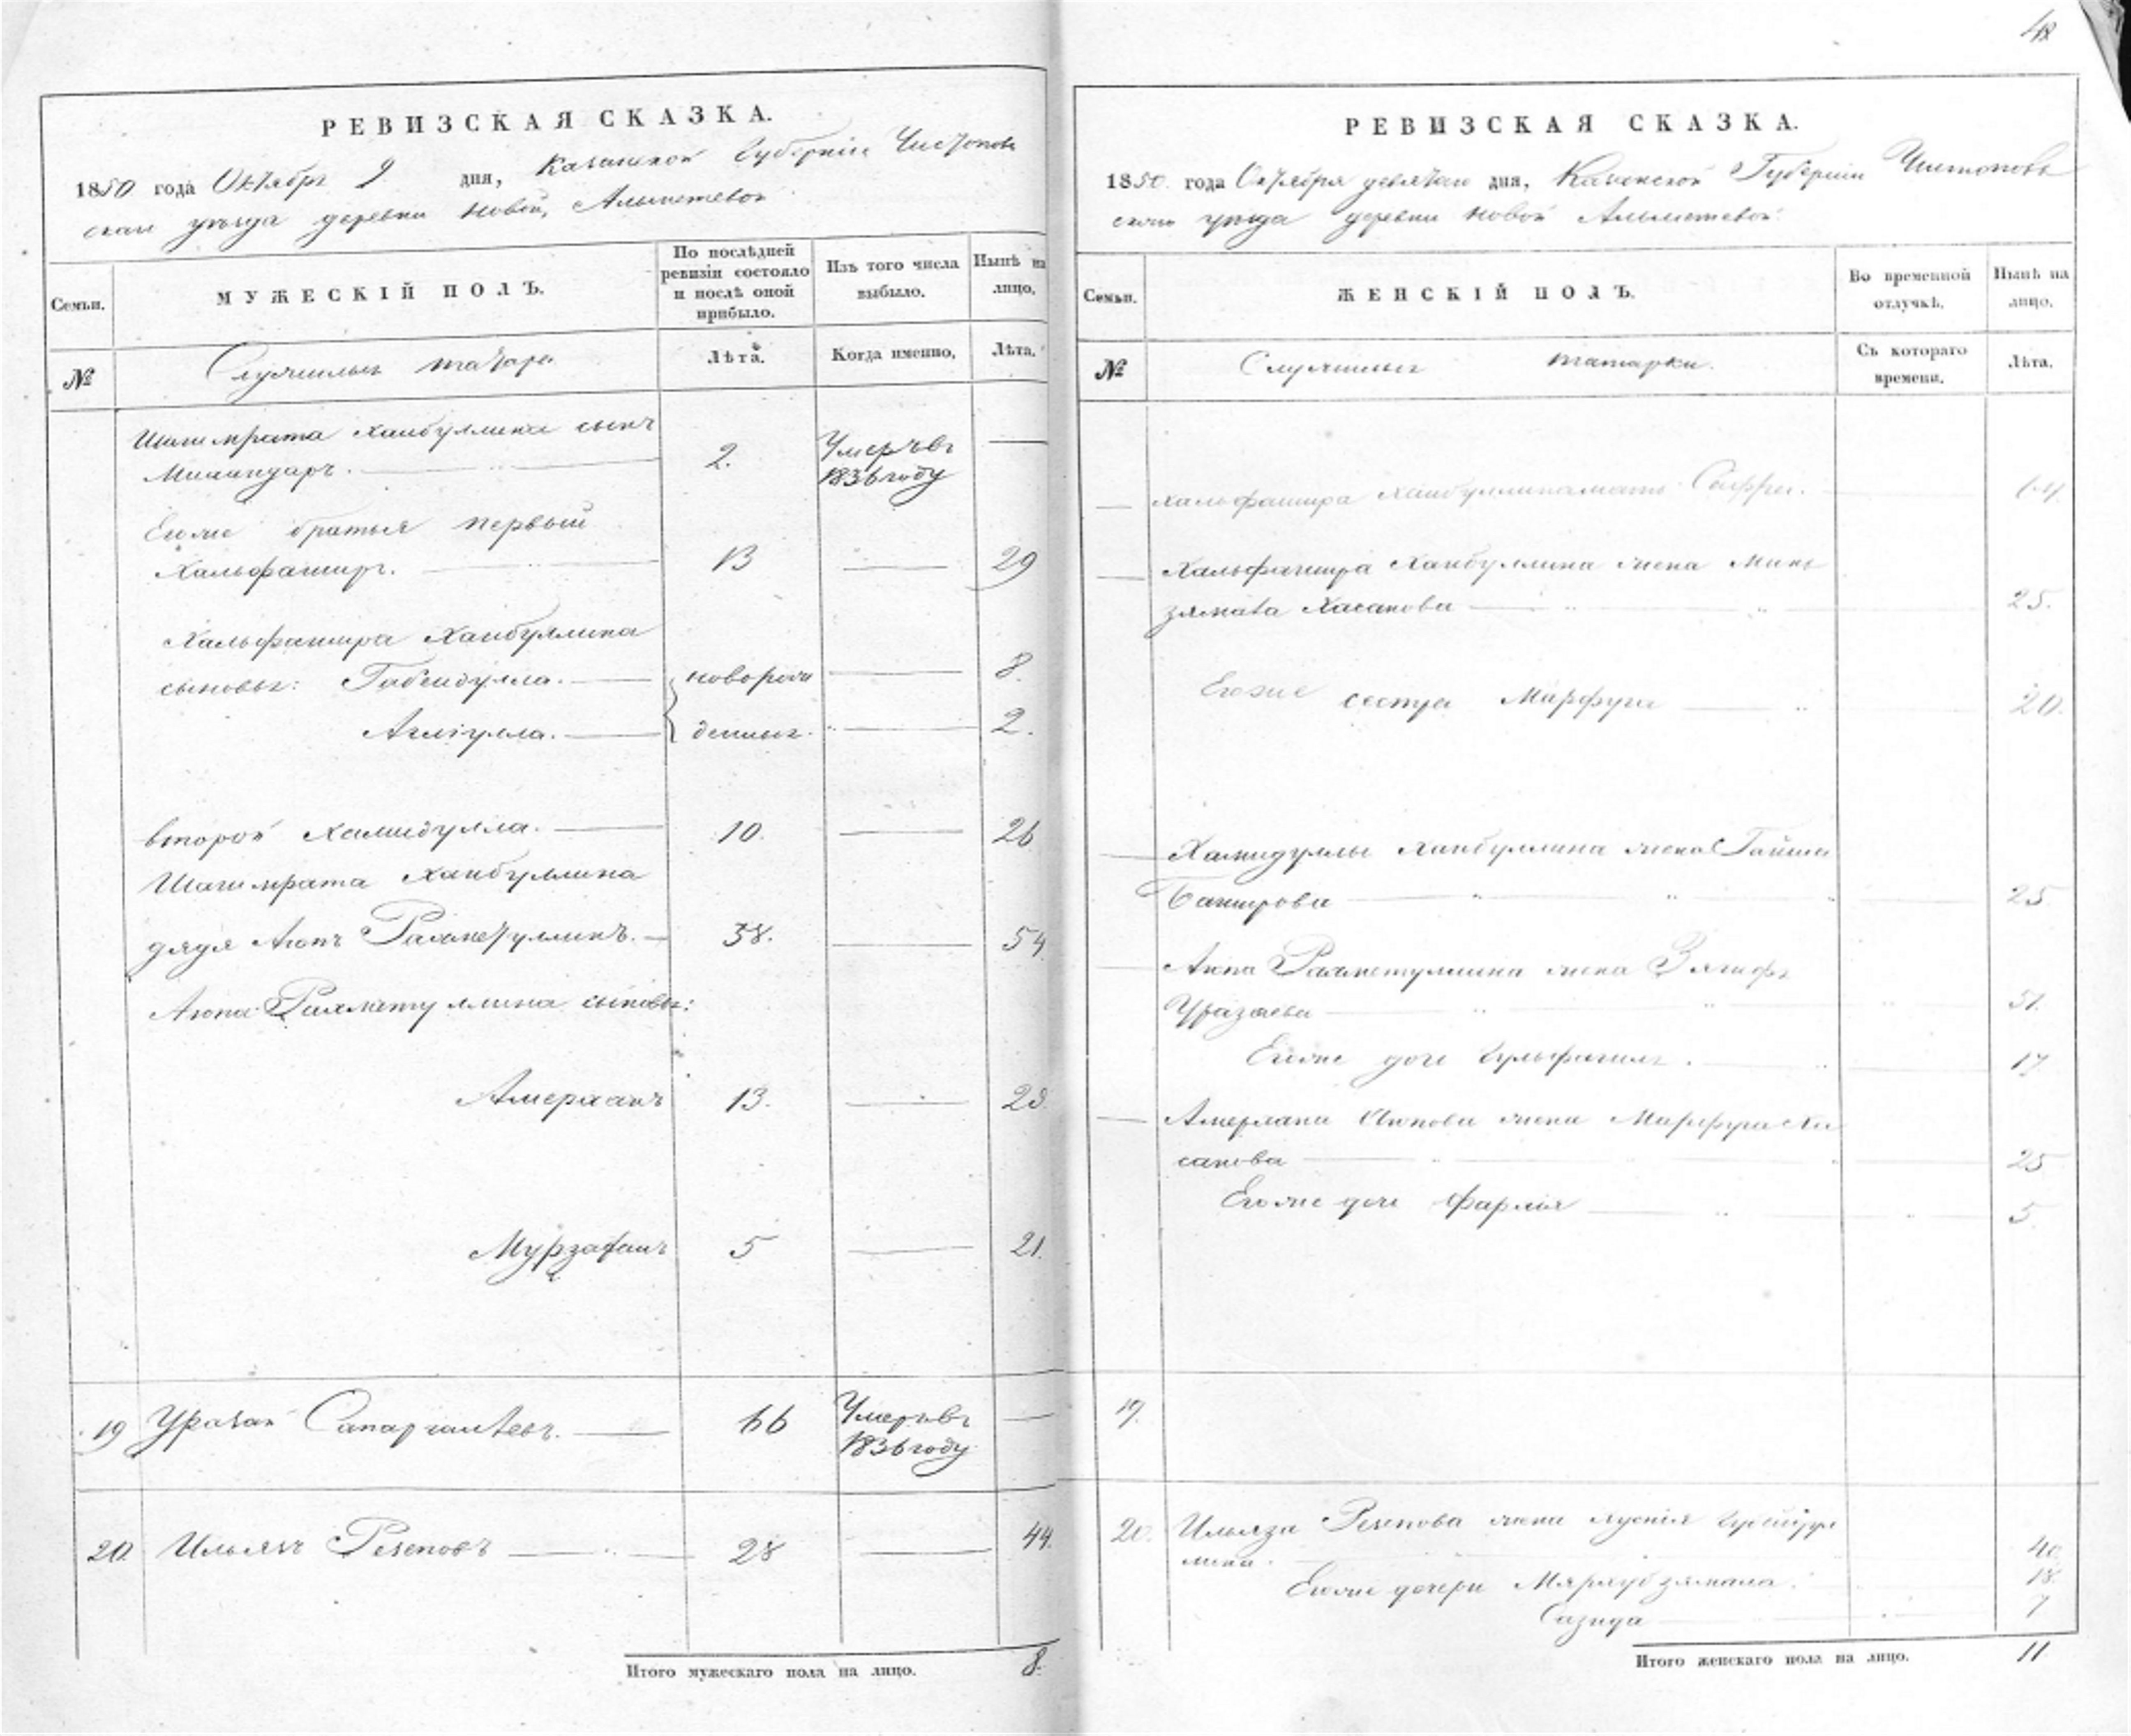 РЕВИЗСКАЯ СКАЗКА.
1850 года Октября 9 дня, Казанской Губернiи Чистополь
скаго уѣзда деревни Новой Альметевой
Семьи.
МУЖЕСКIЙ ПОЛЪ.
По послѣдней ревизiи состояло и послѣ оной прибыло.
Изъ того числа выбыло.
Нынѣ на лицо.
№
Служилые татара
Лѣта.
Когда именно.
Лѣта.
Шагимрата Хаибуллина сынъ
2. Умеръ въ —
1836 году
Егоже братья первый
Хальфатиръ. 13 — 29
Хальфатира Хаибуллина
сыновья: Габейдулла. — новорож — 8.
Аглiулла. — денные. — 2.
второй Хамидулла. — 10. — 26
Шагимрата Хаибуллина
дядя Аюпъ Рахметуллинъ. — 38. — 54
Аюпа Рахметуллина сыновья:
Амерханъ 13. — 29
5 — 21.
19 Уразай — 66 Умеръ въ —
1836 году
20. Ильязъ — 28 — 44.
Итого мужескаго пола на лицо. 8.
РЕВИЗСКАЯ СКАЗКА.
1850. года Октября девятаго дня, Казанской Губернiи Чистополь
скаго уѣзда деревни Новой Альметевой.
Семьи.
ЖЕНСКIЙ ПОЛЪ.
Во временной отлучкѣ.
Нынѣ на лицо.
№
Служилыя татарки.
Съ котораго времени.
Лѣта.
— Хальфатира Хаибуллина мать 64.
— Хальфатира Хаибуллина жена Минь
зямала Хасанова — 25.
Егоже сестра Марфуга — 20.
— Хамидуллы Хаибуллина жена Гайша
Башірова — 25
— Аюпа Рахметуллина жена
Уразаева — 51.
Егоже дочь 17
— Амерхана Аюпова жена Марфуга Ха
санова — 25
Егоже дочь — 5.
19.
20. Ильяза жена
лина. 40
Егоже дочери 18.
Сазида — 7
Итого женскаго пола на лицо. 11